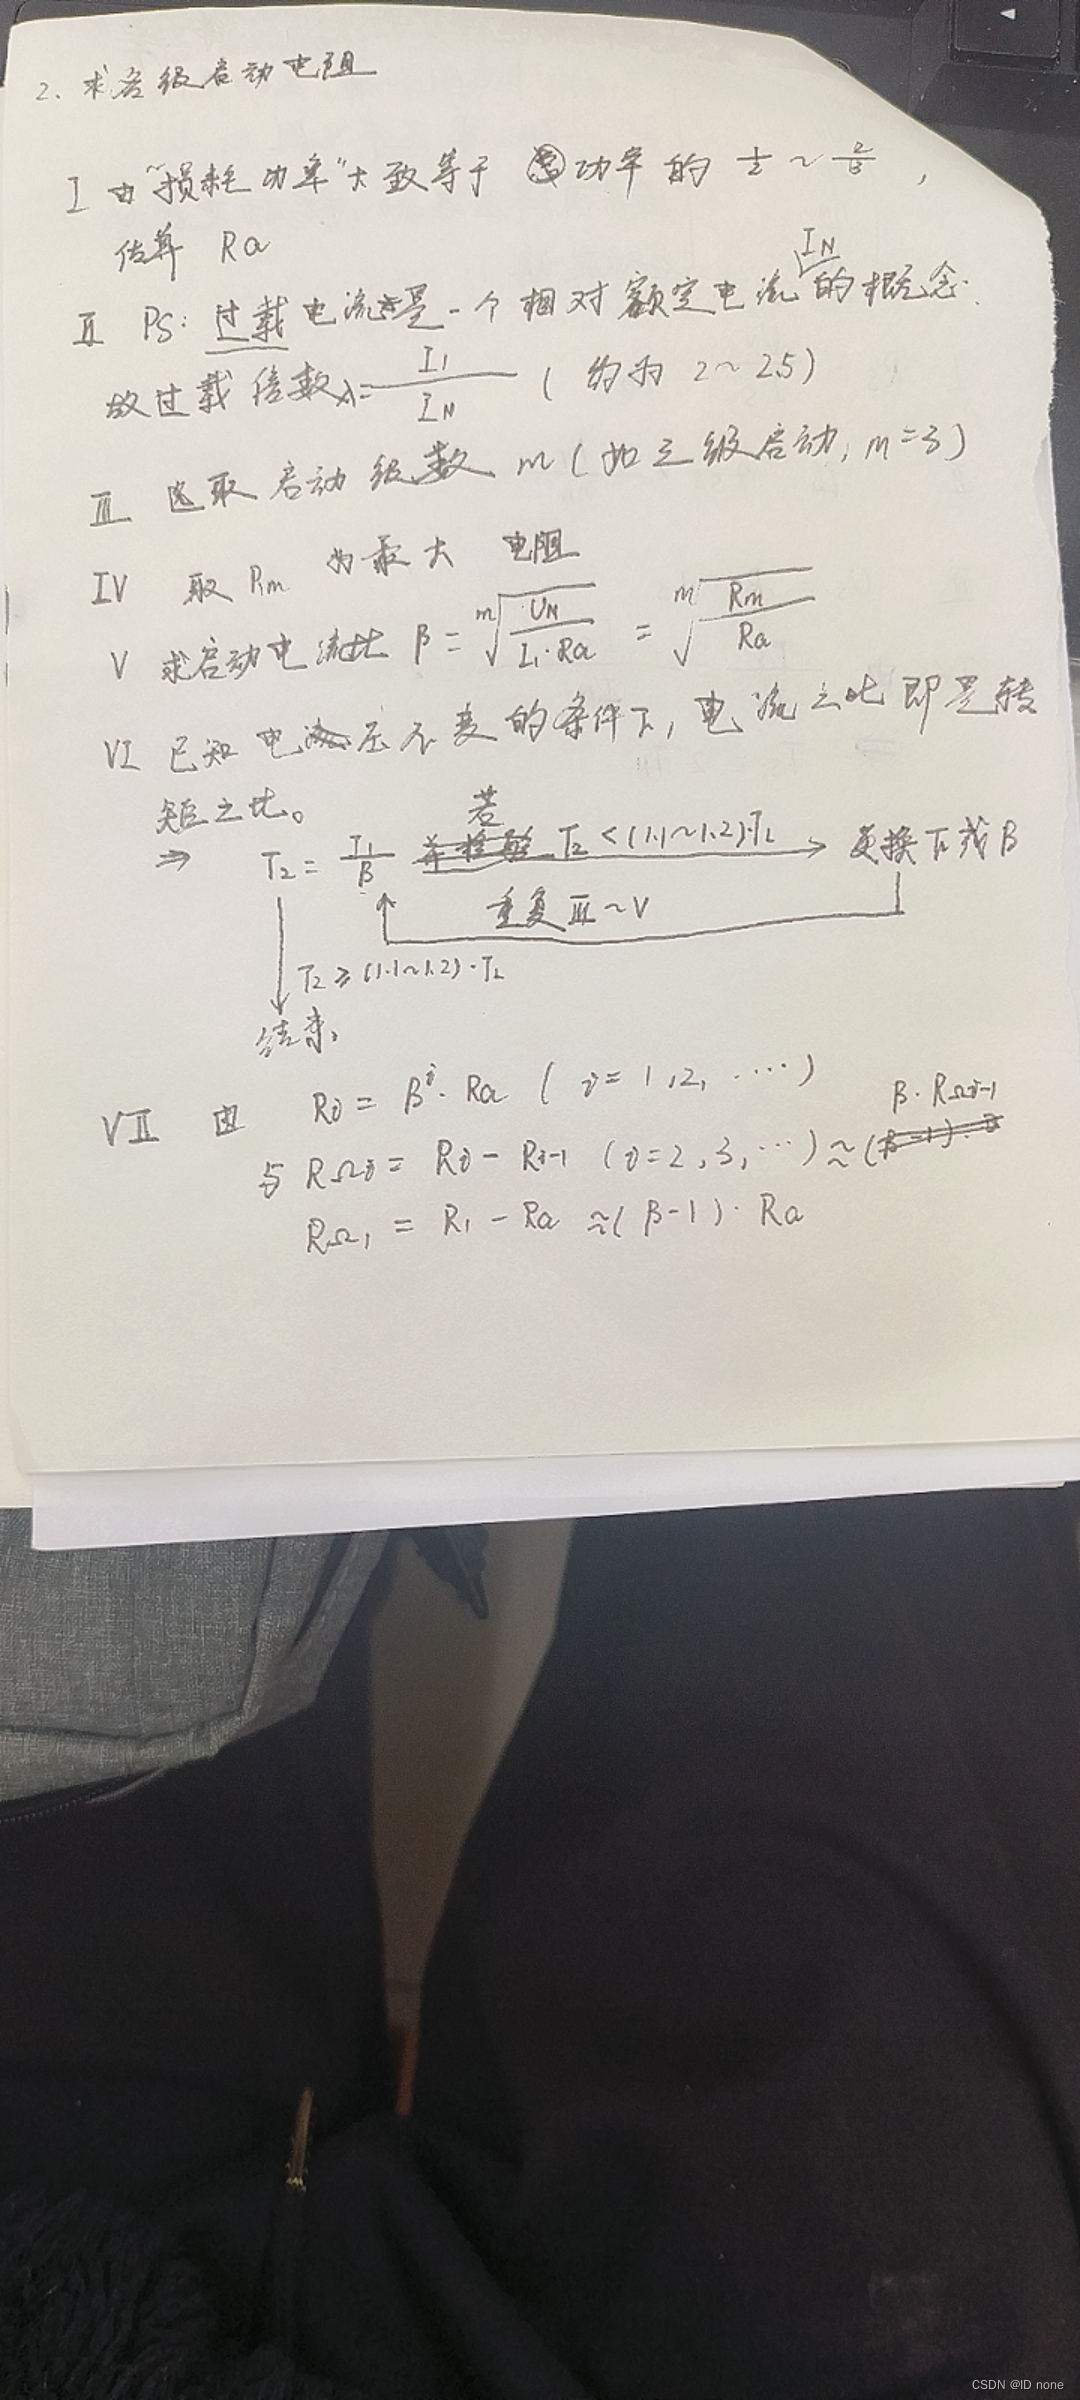 2. 求各级启动电阻
I 由“损耗功率”大致等于 总功率的 1/2 ~ 2/3 ,
估算 Ra
IN
II PS: 过载电流是一个相对额定电流的概念.
故过载倍数λ= I1/IN ( 约为 2~2.5)
III 选取启动级数 m ( 如三级启动, m=3 )
IV 取 Rm 为最大 电阻
V 求启动电流比 β = m√(UN/(I1·Ra)) = m√(Rm/Ra)
VI 已知电压不变的条件下, 电流之比即是转
矩之比。
若
⇒ T2 = T1/β T2 < (1.1~1.2)·TL 更换T1或β
重复 III ~ V
T2 ≥ (1.1~1.2)·TL
结束.
VII 由 Ri = β^i · Ra ( i = 1,2, ····)
β · RΩi-1
与 RΩi = Ri − Ri-1 ( i=2,3,···) ≈ (
RΩ1 = R1 − Ra ≈ ( β-1 ) · Ra
CSDN @ID none